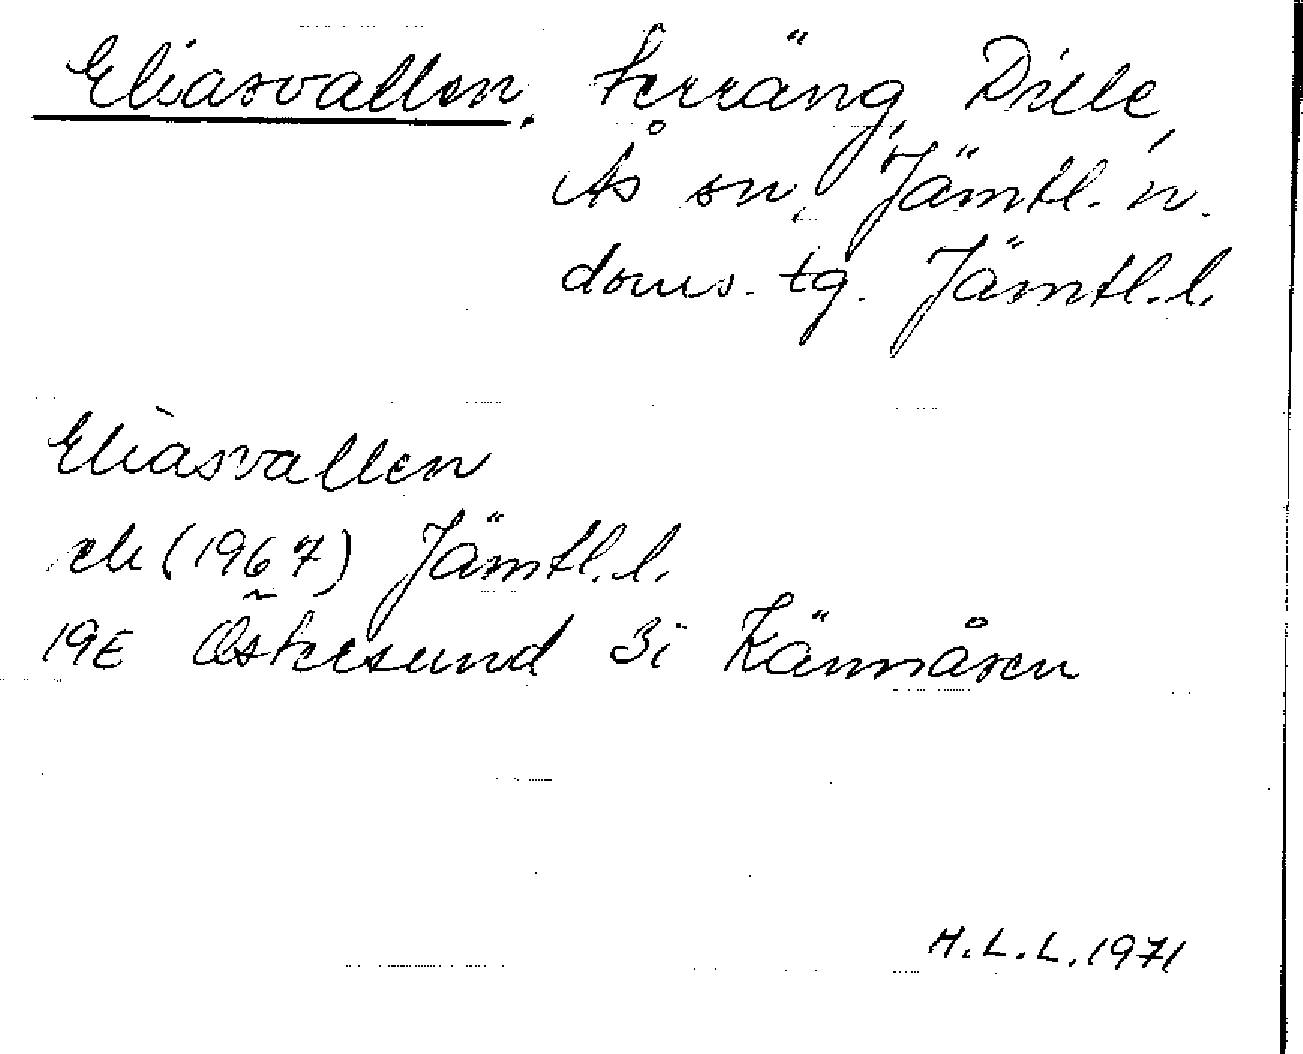 Eliasvallen, terräng, Dille,
Ås sn, Jämtl. n.
doms. tg. Jämtl. l.
Eliasvallen
ek (1967) Jämtl. l.
19E Östersund 3i Kännåsen
H.L.L. 1971